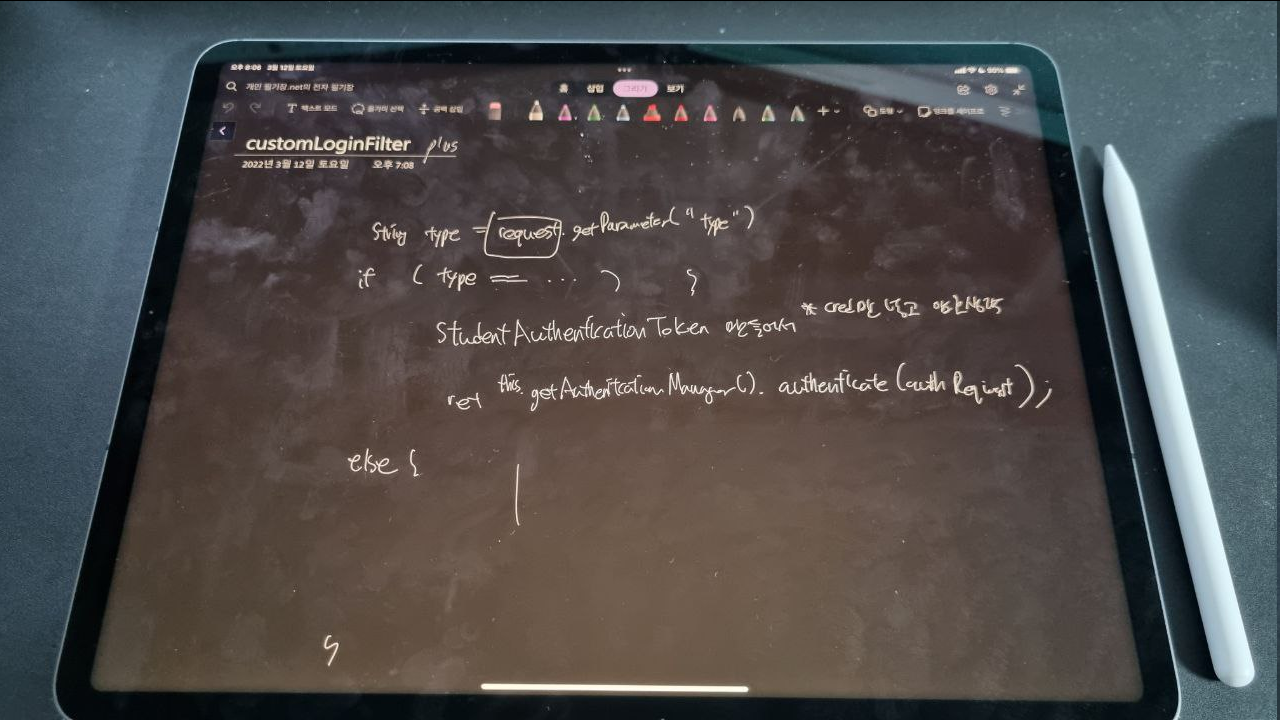 오후 8:08 3월 12일 토요일 95%
개인 필기장.net의 전자 필기장
홈 삽입 그리기 보기
텍스트 모드 올가미 선택 공백 삽입 도형
customLoginFilter plus
2022년 3월 12일 토요일 오후 7:08
String type = request. getParameter("type")
if ( type == ... ) {
* cred만 넣고
StudentAuthenticationToken 만들어서
ret this. getAuthenticationManager(). authenticate(authRequest);
else {
}